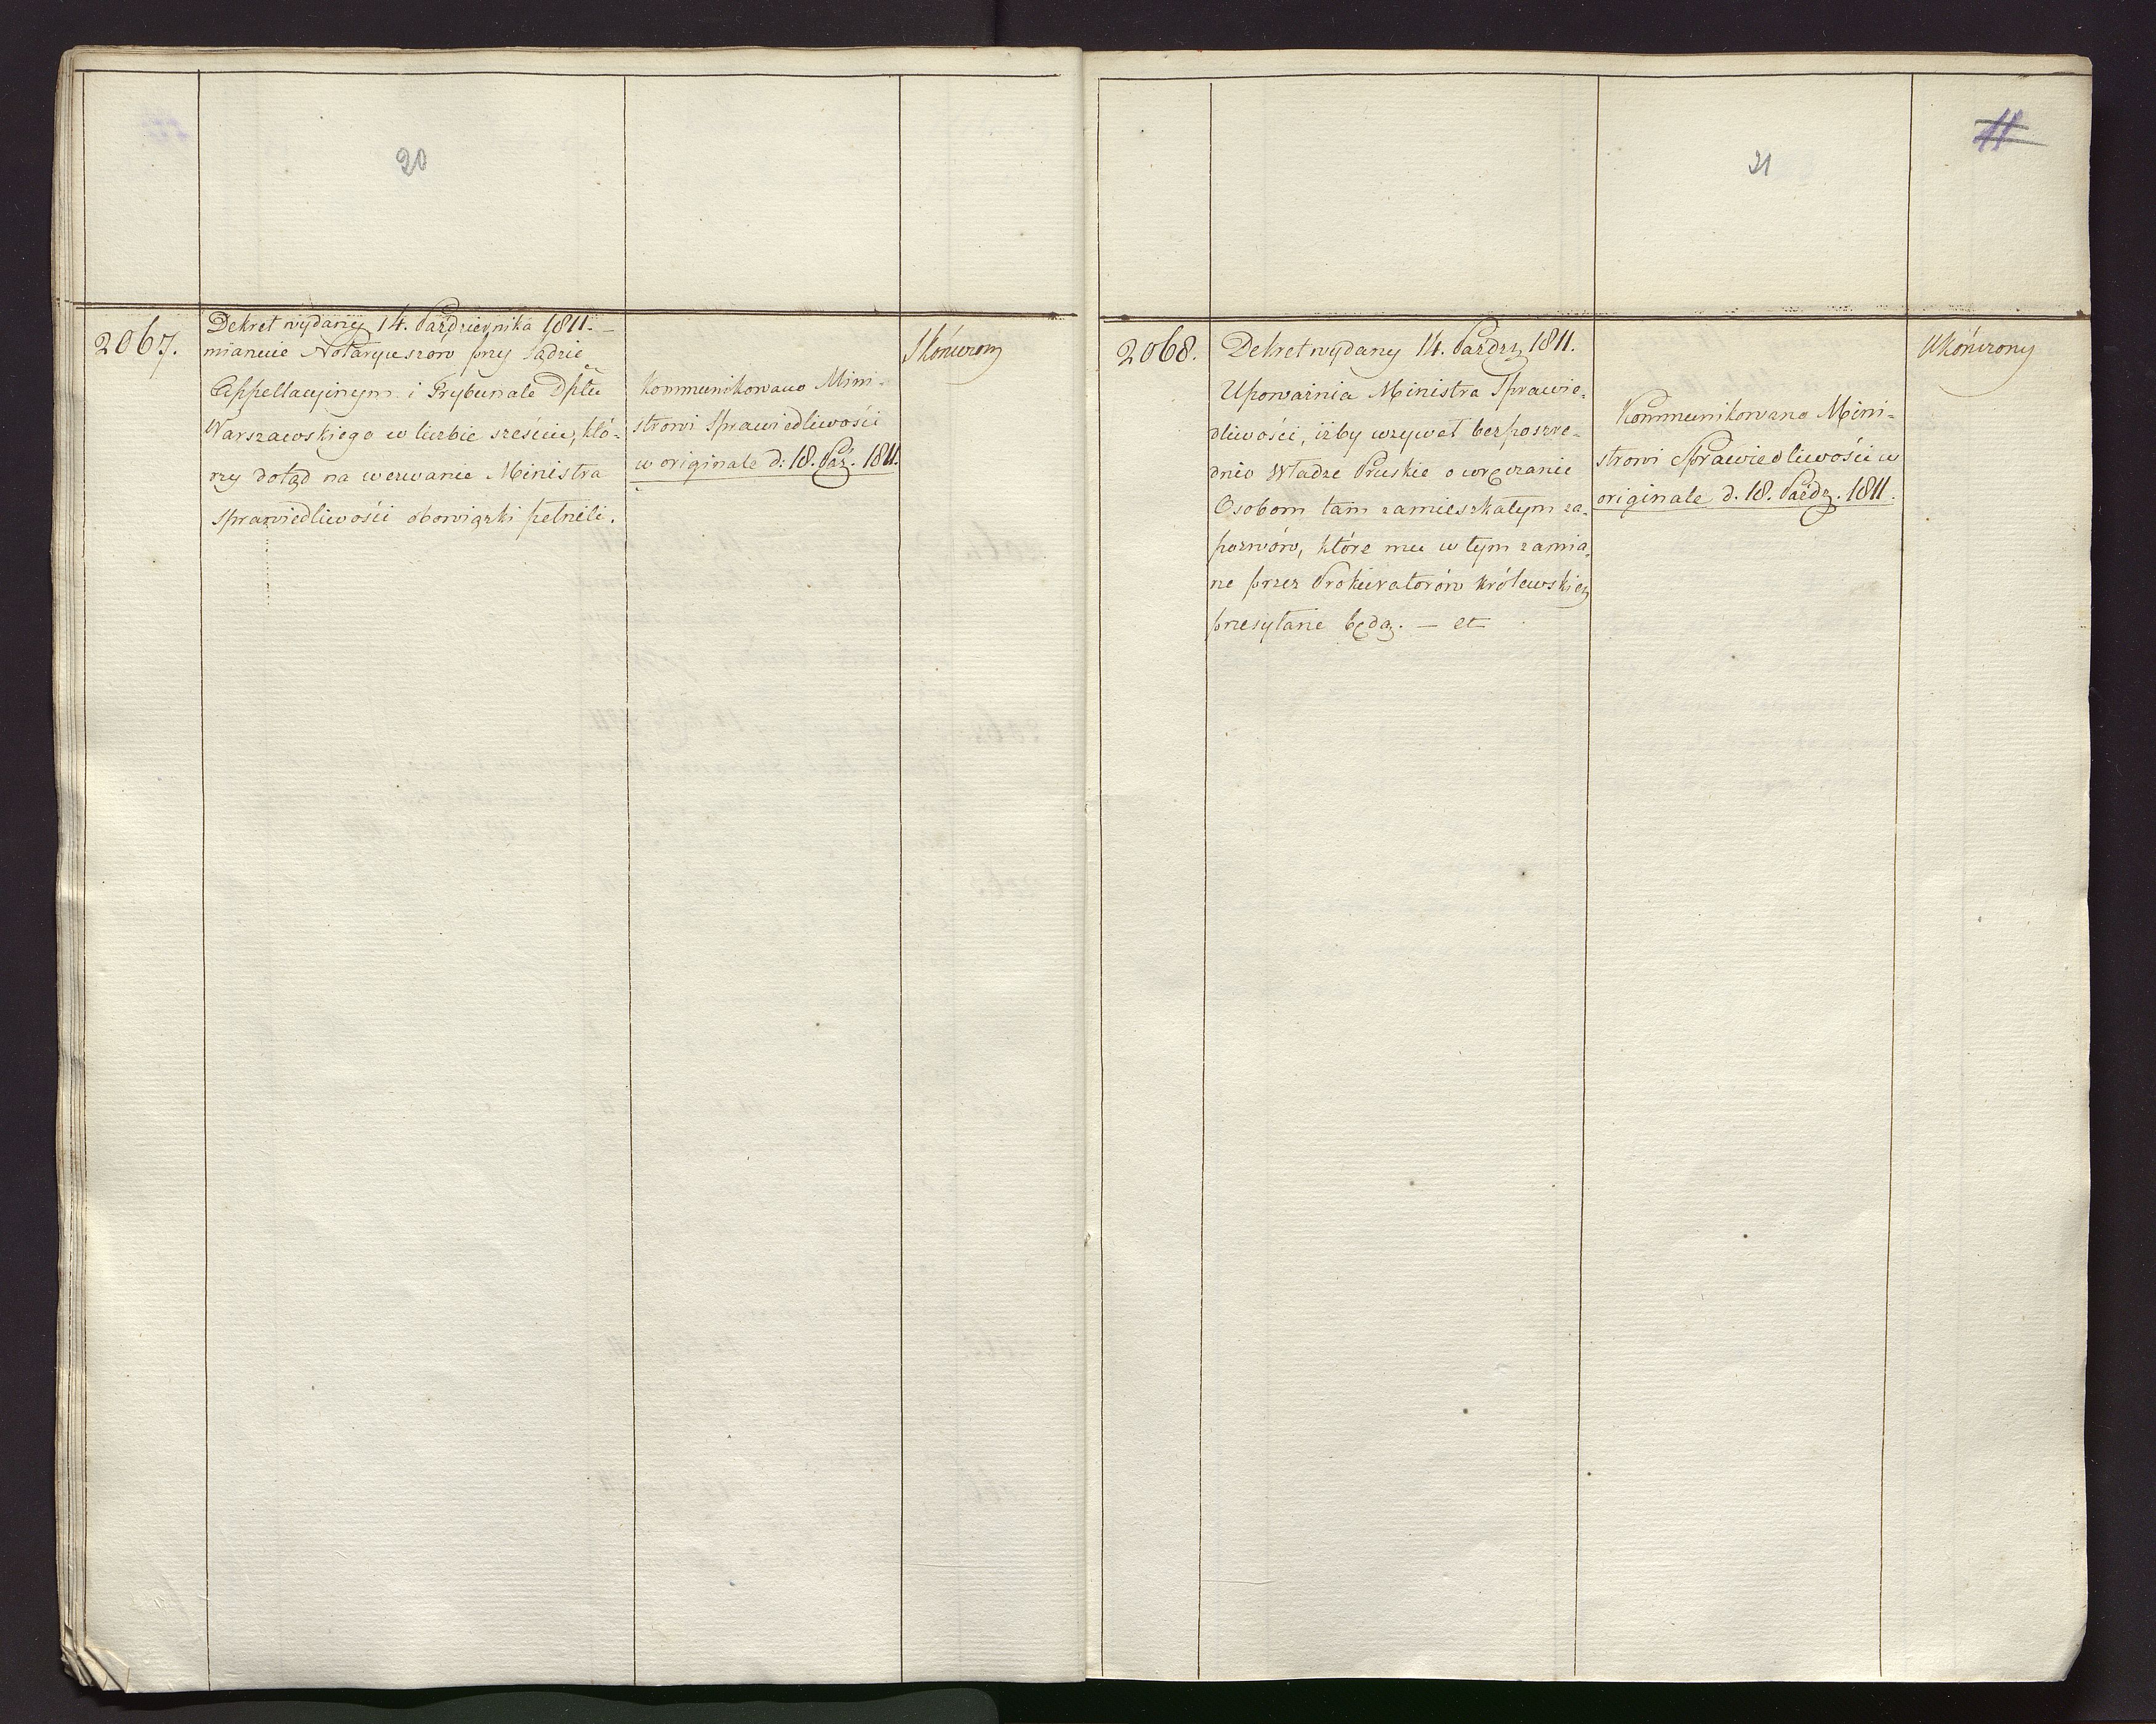 20
2067.
Dekret wydany 14. Października 1811. –
mianuie Notaryuszów przy Sądzie
Appellacyinym i Trybunale Dpttu
Warszawskiego w liczbie sześciu, któ-
rzy dotąd na wezwanie Ministra
Sprawiedliwości obowiązki pełnili.
Kommunikowano Mini-
strowi Sprawiedliwości
w originale d: 18. Paź. 1811.
Skończony
11
21
2068.
Dekret wydany 14. Paźdz. 1811.
Upoważnia Ministra Sprawie-
dliwości, iżby wzywał bezpośre-
dnio Władze Pruskie o wręczanie
Osobom tam zamieszkałym za-
pozwów, które mu w tym zamia-
rze przez Prokuratorów Królewskich
przesyłane będą. — et
Kommunikowano Mini-
strowi Sprawiedliwości w
originale d. 18. Paźdz. 1811.
Ukończony